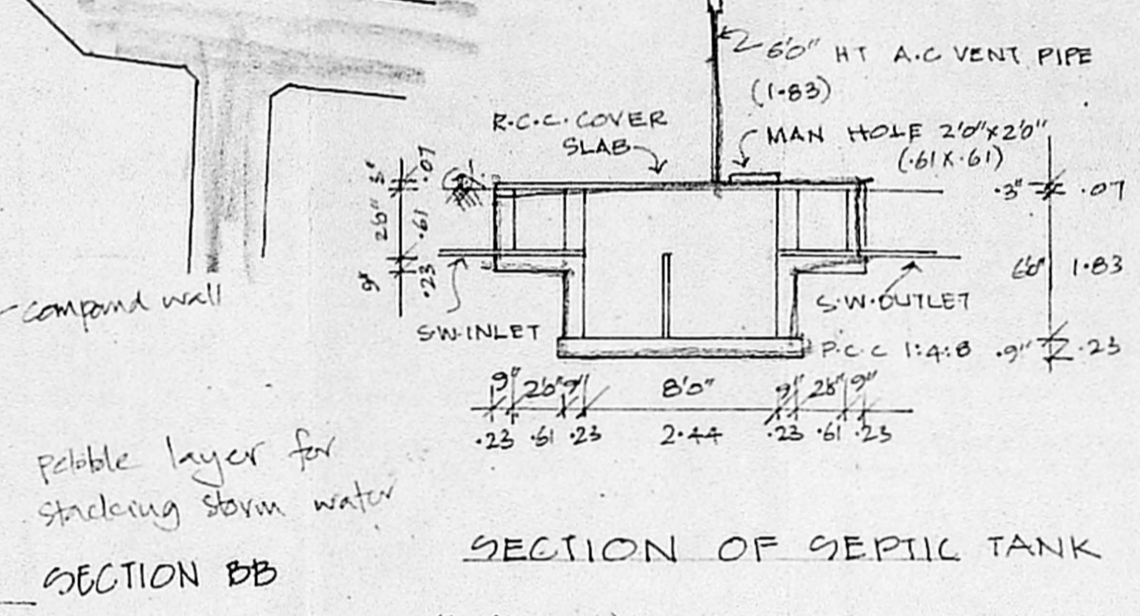 6'0" HT A.C VENT PIPE
(1.83)
R.C.C. COVER
SLAB
MAN HOLE 2'0"X2'0"
(.61X.61)
3" .07
2'0" .61
9" .23
.3" .07
6'0" 1.83
.9" .23
S.W. INLET
S.W. OUTLET
P.C.C 1:4:8
9" 2'0" 9" 8'0" 9" 2'0" 9"
.23 .61 .23 2.44 .23 .61 .23
compound wall
pebble layer for
stacking storm water
SECTION BB
SECTION OF SEPTIC TANK